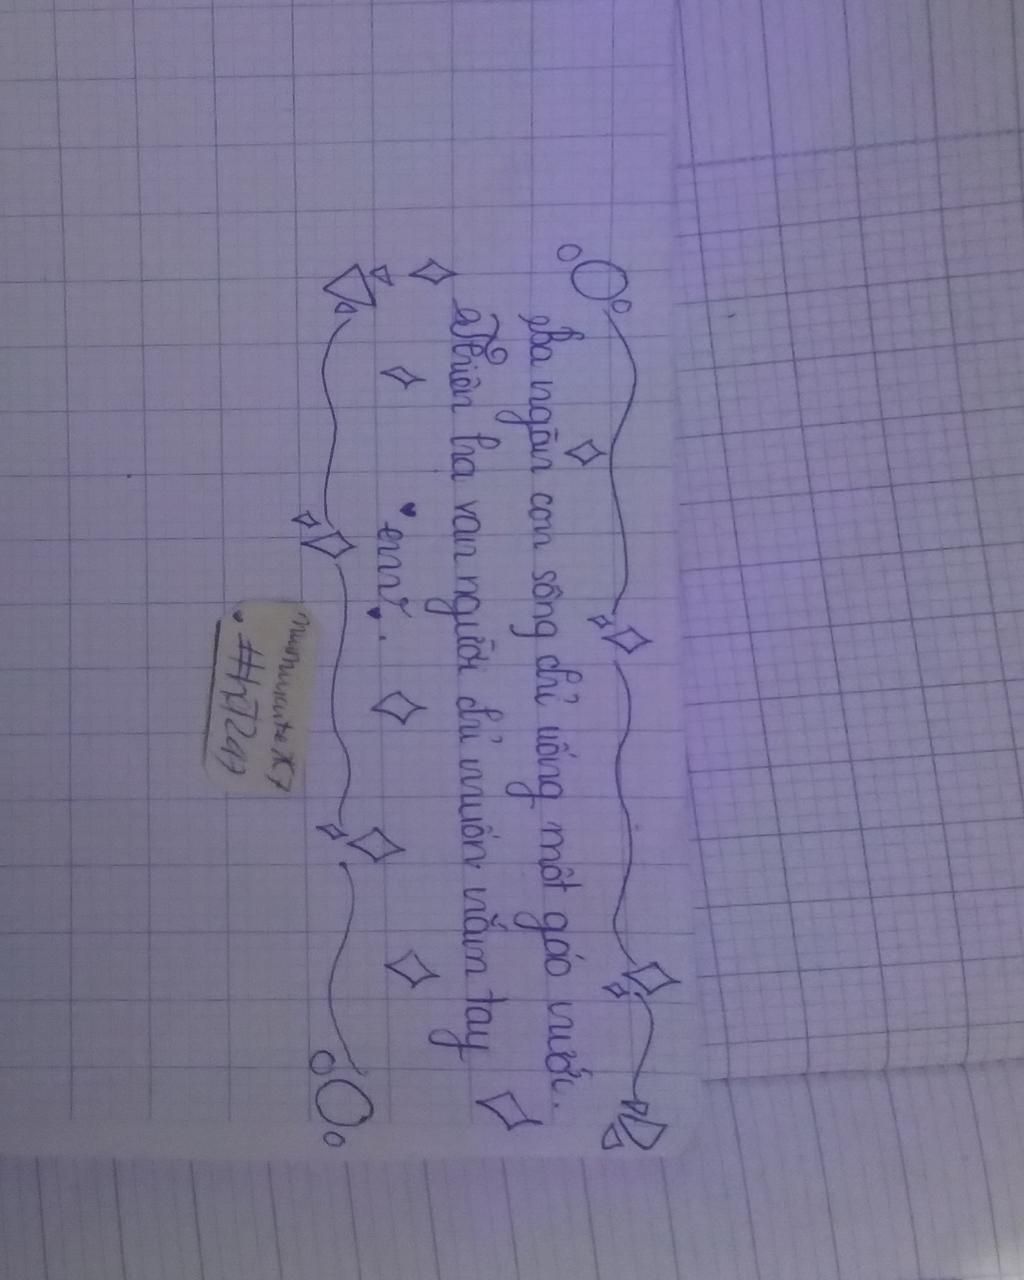 Ba ngàn con sông chỉ uống một gáo nước.
Thiên hạ vạn người chỉ muốn nắm tay
em.
#hT247